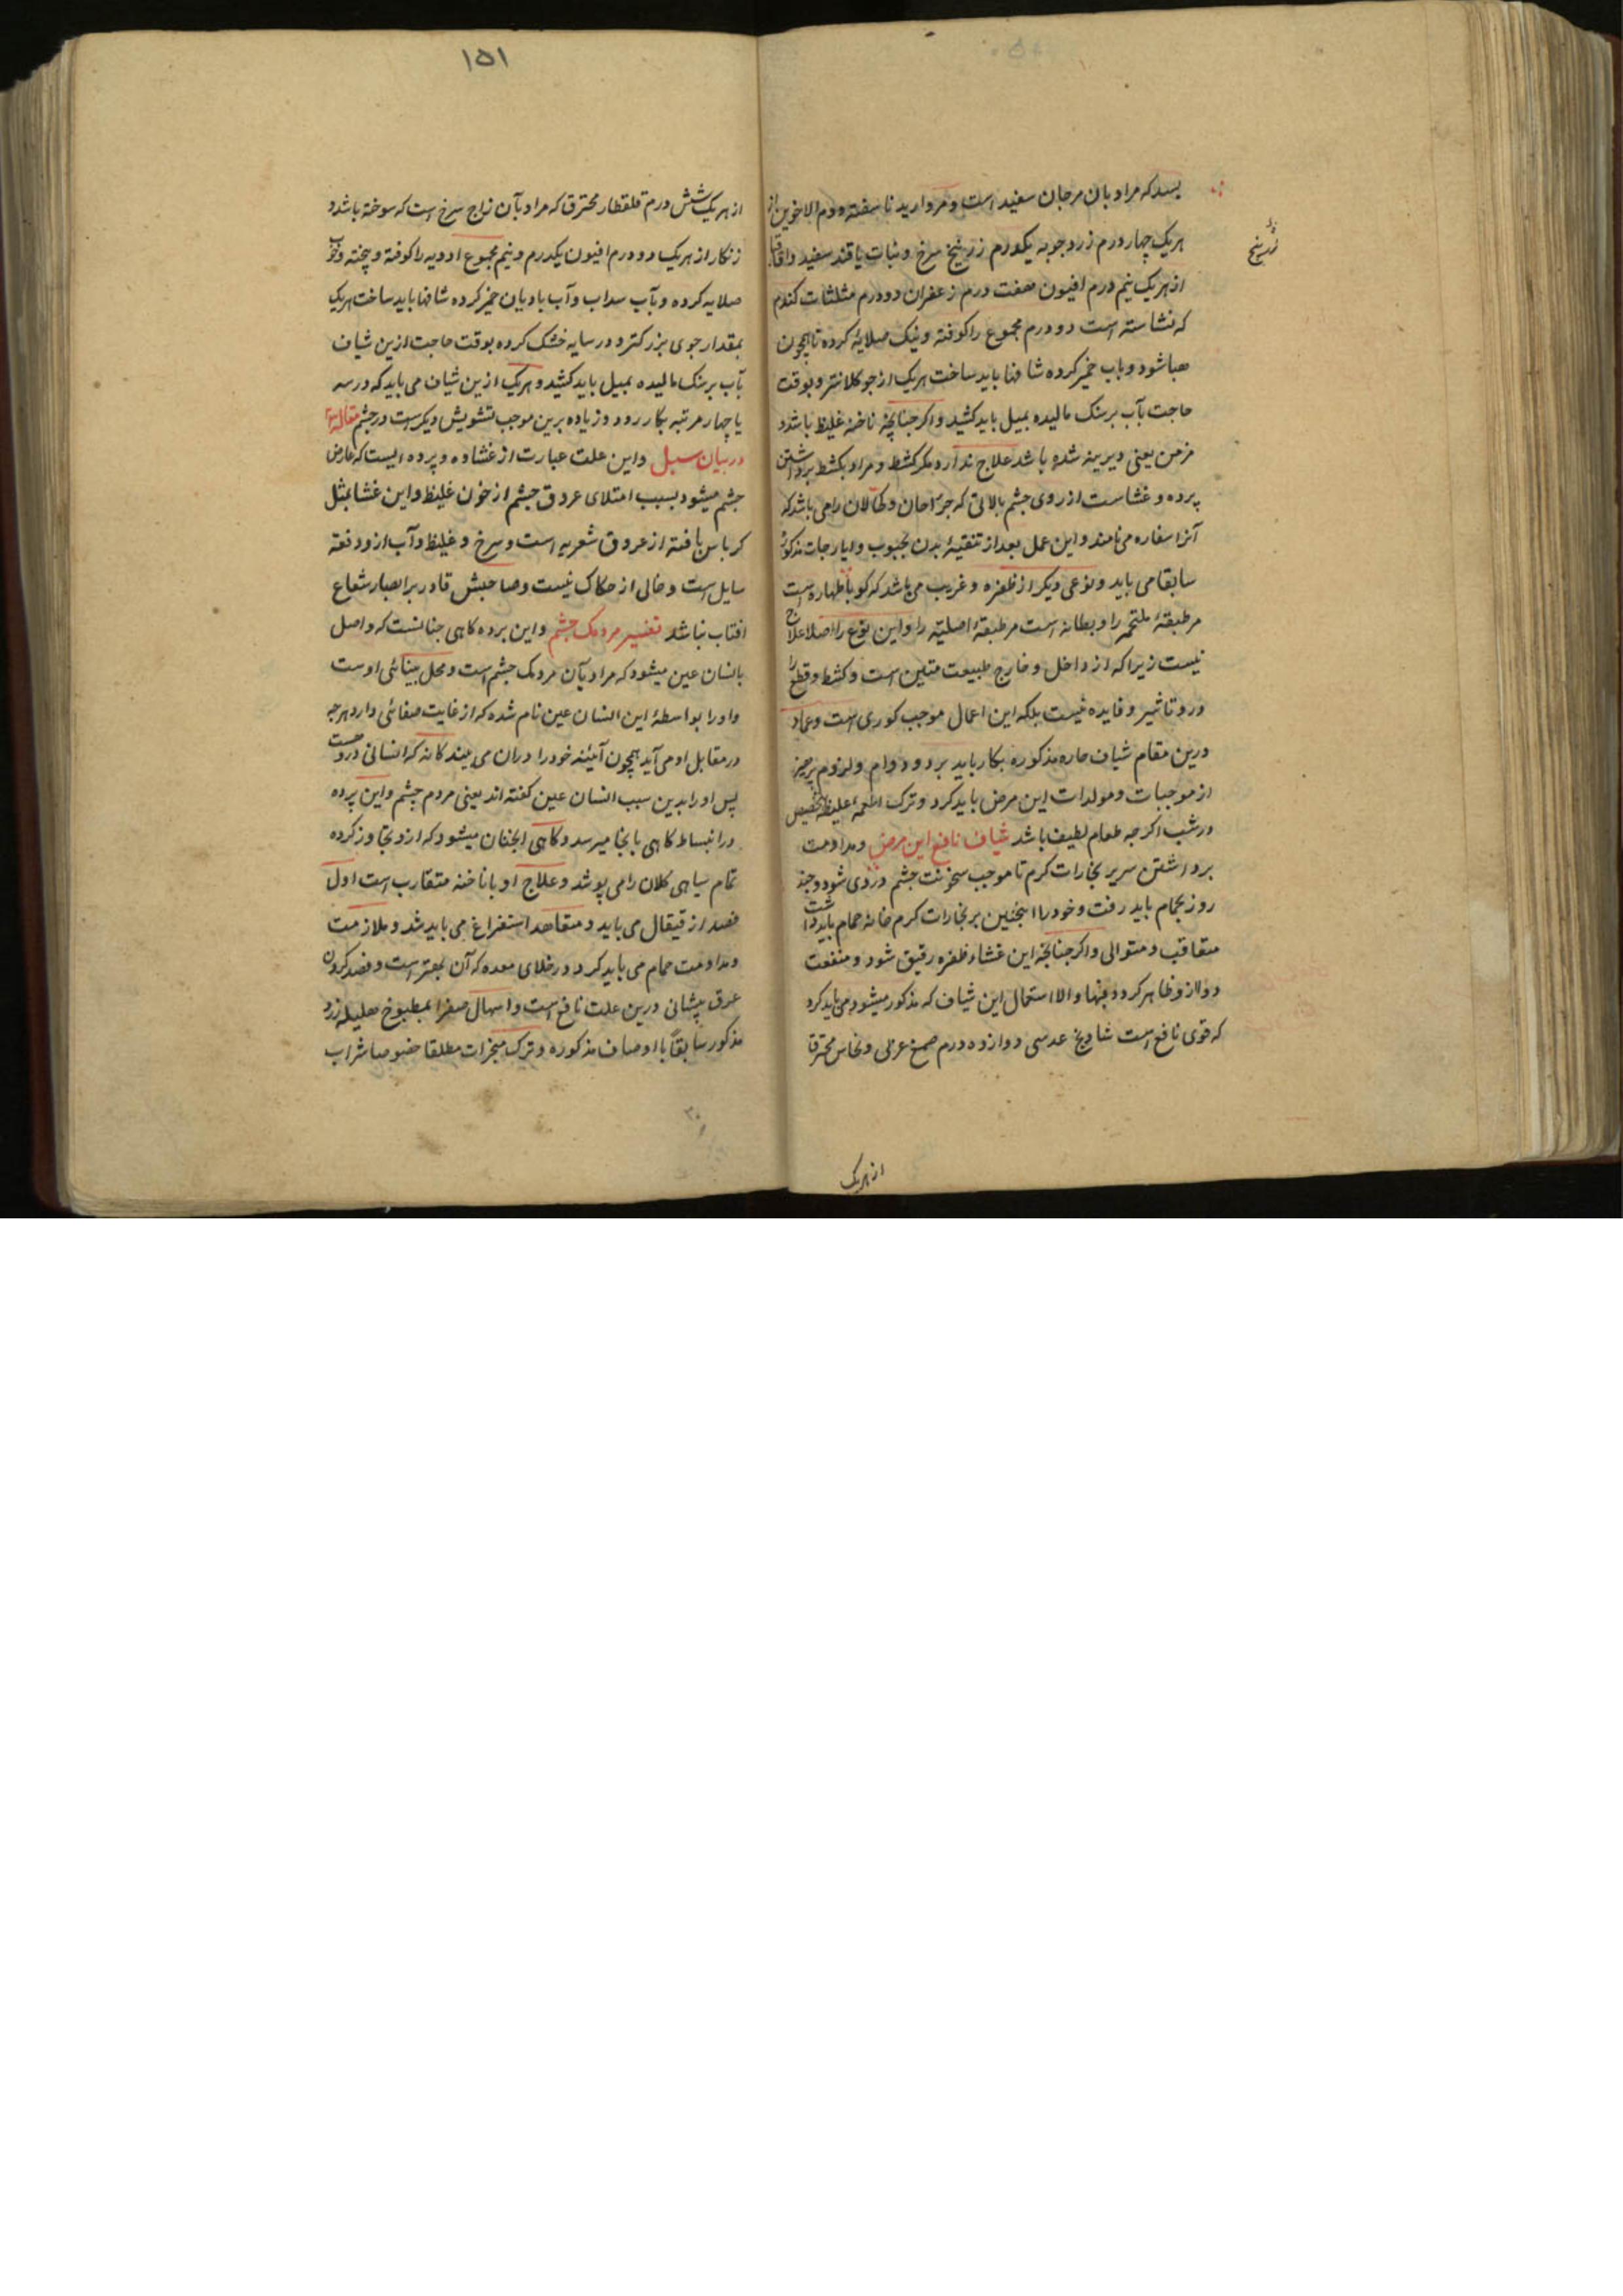 بسد که مراد بان مرجان سفید است و مروارید ناسفته و دم الاخوین از
هریک چهار درم زرد چوبه یکدرم زرنیخ سرخ و نبات یا قند سفید و اقاقیا
از هریک نیم درم افیون هفت درم زعفران دو درم مثلثات کندم
که نشاسته است دو درم مجموع را کوفته و نیک صلایه کرده تا همچون
هبا شود و باب خمیر کرده شافها باید ساخت هریک از جو کلانتر و بوقت
حاجت بآب بر سنک مالیده بمیل باید کشید و اکر جنانچه ناخنه غلیظ باشد و
مزمن یعنی دیرینه شده باشد علاج ندارد مکر کشط و مراد بکشط برداشتن
پرده و غشاست از روی جشم بالاتی که جراحان و کحالان را می باشد که
آنرا سفاره می نامند و این عمل بعد از تنقیهٔ بدن بحبوب و ایارجات مذکورهٔ
سابقا می باید و نوعی دیکر از ظفره و غریب می باشد که کویا ظهاره است
مر طبقهٔ ملتحمه را و بطانه است مر طبقهٔ اصلیته را و این نوع را اصلا علاج
نیست زیرا که از داخل و خارج طبیعت متلین است و کشط و قطع را
درو تاثیر و فایده نیست بلکه این اعمال موجب کوری است و عماد
درین مقام شیاف حاره مذکوره بکار باید برد و دوام و لزوم پرهیز
از موجبات و مولدات این مرض باید کرد و ترک اطعمه غلیظه بتخصیص
در شب اکرجه طعام لطیف باشد شیاف نافع این مرض و مداومت
برداشتن سر بر بخارات کرم تا موجب سخونت جشم و زدی شود و جند
روز بحمام باید رفت و خود را اینجنین بر بخارات کرم خانهٔ حمام باید داشت
متعاقب و متوالی و اکر جنانچه این غشاء ظفره رقیق شود و منفعت
دوا ازو ظاهر کردد فبها و الا استعمال این شیاف که مذکور میشود می باید کرد
که قوی نافع است شادنج عدسی دوازده درم صمغ عربی و نحاس محترق
زرنیخ
از هریک
۱۵۱
از هریک شش درم قلقطار محترق که مراد بآن زاج سرخ است که سوخته باشد و
زنکار از هریک دو درم افیون یکدرم و نیم مجموع ادویه را کوفته و پخته و خوب
صلایه کرده و بآب سداب و آب بادیان خمیر کرده شافها باید ساخت هریک
بمقدار جوی بزرکتر و در سایه خشک کرده بوقت حاجت ازین شیاف
بآب بر سنک مالیده بمیل باید کشید و هریک ازین شیاف می باید که در سه
یا چهار مرتبه بکار رود و زیاده برین موجب تشویش دیکرست در جشم مقاله
در بیان سبل و این علت عبارت از غشاوه و پرده ایست که عارض
جشم میشود بسبب امتلای عروق جشم از خون غلیظ و این غشا بمثل
کرباس بافته از عروق شعریه است و سرخ و غلیظ و آب ازو دفعة
سایل است و خالی از حکاک نیست و صاحبش قادر بر ابصار شعاع
افتاب نباشد تفسیر مردمک جشم و این پرده کاهی جنانست که واصل
بانسان عین میشود که مراد بآن مردمک جشم است و محل بینائی اوست
و او را بواسطهٔ این انسان عین نام شده که از غایت صفائی دارد هرجه
در مقابل او می آید همچون آئینه خود را دران می بیند کانه که انسانی دروست
پس او را بدین سبب انسان عین کفته اند یعنی مردم جشم و این پرده
در انبساط کاهی بانجا میرسد و کاهی انجنان میشود که ازو تجاوز کرده
تمام سیاهی کلان را می پوشد و علاج او با ناخنه متقارب است اول
فصد از قیقال می باید و متعاهد استفراغ می باید شد و ملازمت
و مداومت حمام می باید کرد در خلای معده که آن بهتر است و فصد کردن
عرق پیشانی درین علت نافع است و اسهال صفرا بمطبوخ هلیله زرد
مذکور سابقاً با اوصاف مذکوره و ترک مبخرات مطلقا خصوصا شراب